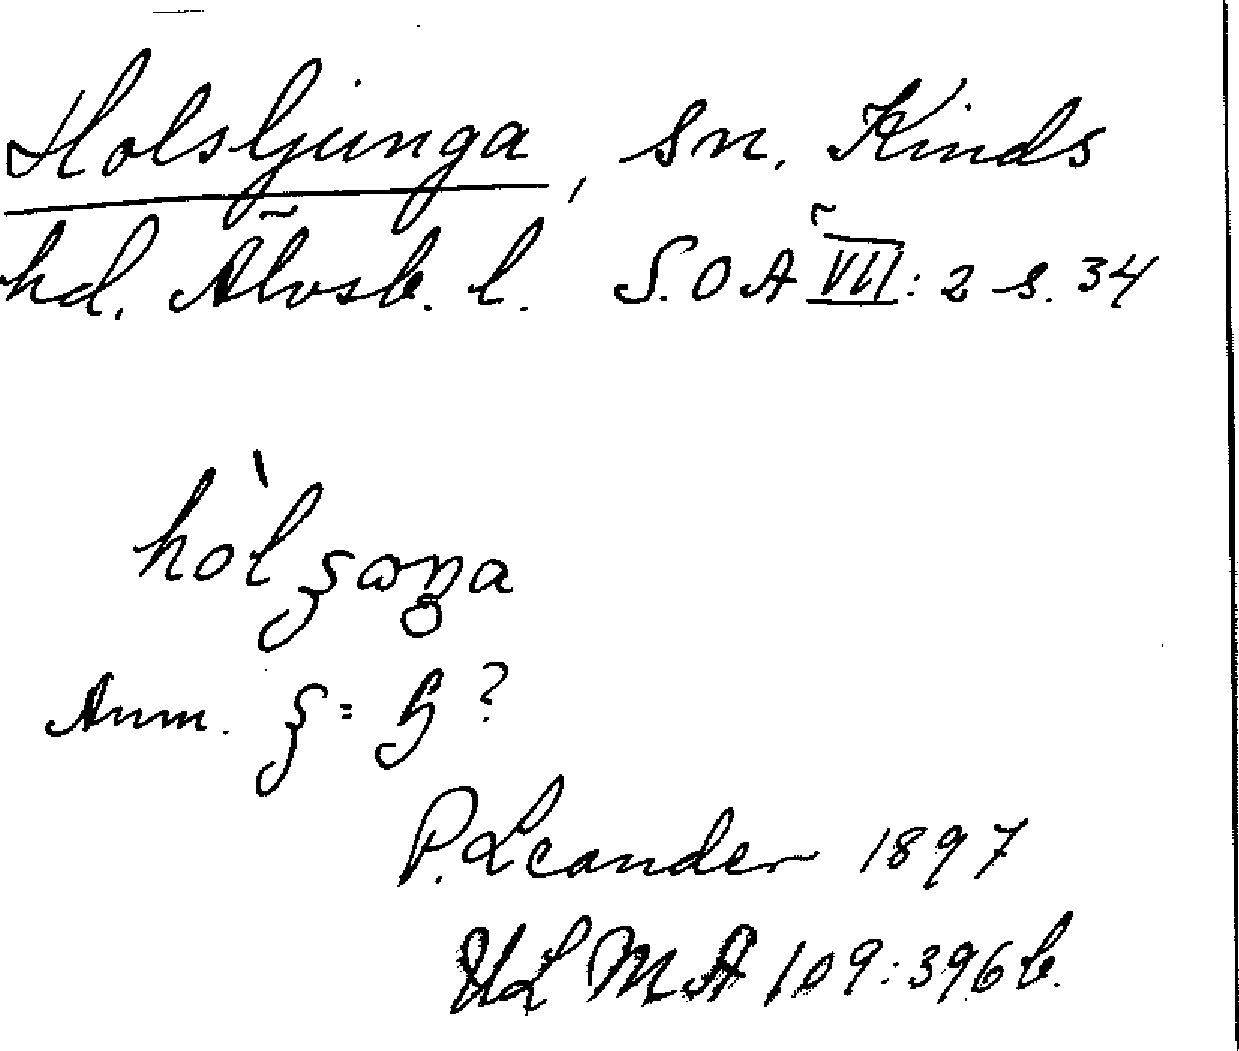 Holsljunga, sn. Kinds
hd. Älvsb. l. S.O.A VII: 2 s. 34
Anm. ʒ = ?
P. Leander 1897
ULMA 109:396 b.